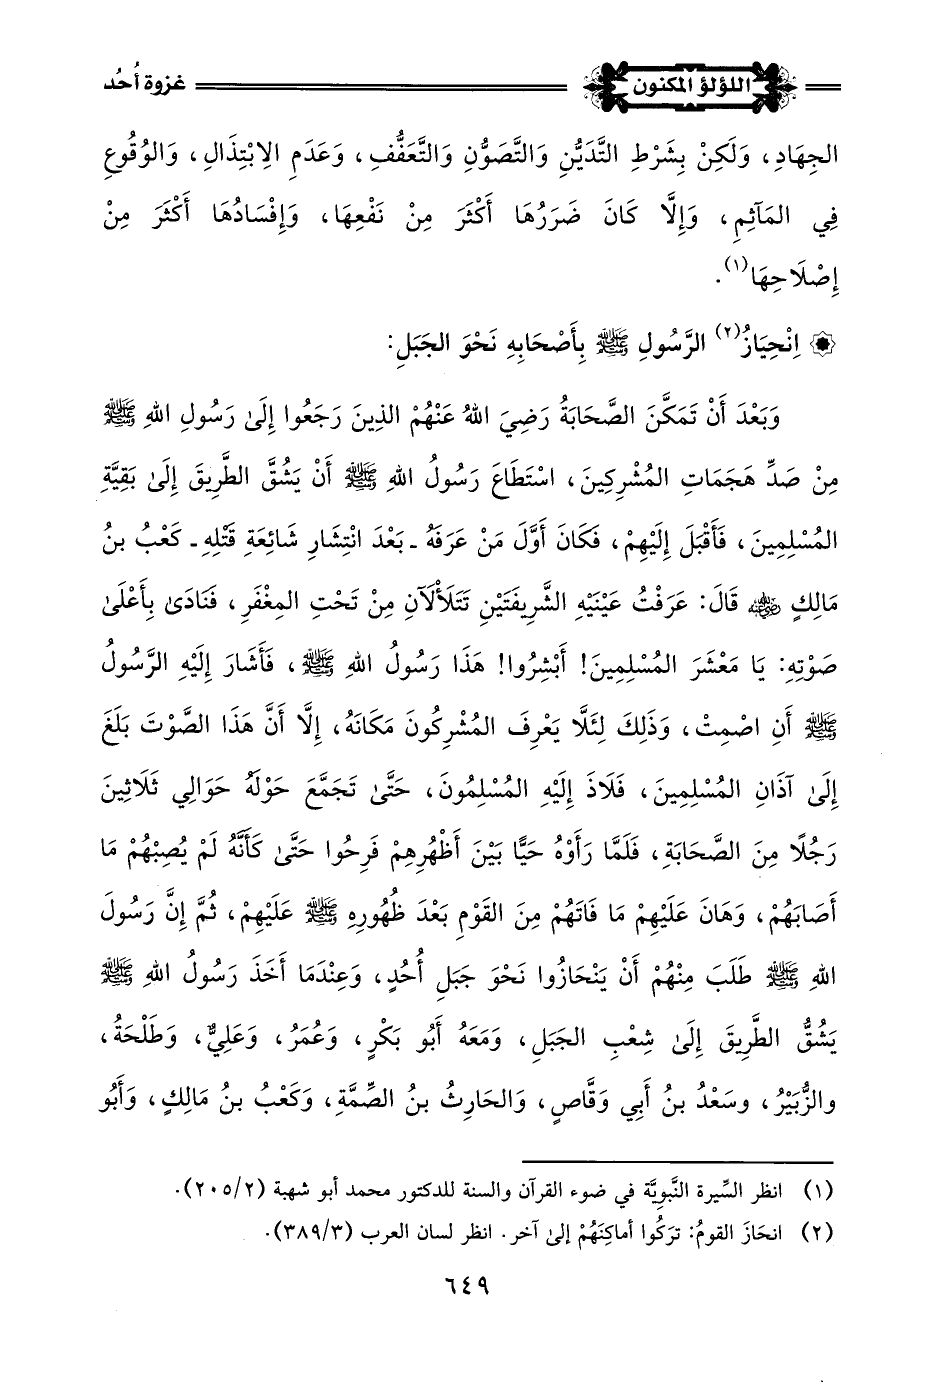 اللؤلؤ المكنون
غزوة أُحُد
الجِهَادِ، وَلَكِنْ بِشَرْطِ التَّدَيُّنِ وَالتَّصَوُّنِ وَالتَّعَفُّفِ، وَعَدَمِ الِابْتِذَالِ، وَالوُقُوعِ
فِي المَآثِمِ، وَإِلَّا كَانَ ضَرَرُهَا أَكْثَرَ مِنْ نَفْعِهَا، وَإِفْسَادُهَا أَكْثَرَ مِنْ
إِصْلَاحِهَا(١).
۞ اِنْحِيَازُ(٢) الرَّسُولِ ﷺ بِأَصْحَابِهِ نَحْوَ الجَبَلِ:
وَبَعْدَ أَنْ تَمَكَّنَ الصَّحَابَةُ رَضِيَ اللهُ عَنْهُمْ الذِينَ رَجَعُوا إِلَىٰ رَسُولِ اللهِ ﷺ
مِنْ صَدِّ هَجَمَاتِ المُشْرِكِينَ، اسْتَطَاعَ رَسُولُ اللهِ ﷺ أَنْ يَشُقَّ الطَّرِيقَ إِلَىٰ بَقِيَّةِ
المُسْلِمِينَ، فَأَقْبَلَ إِلَيْهِمْ، فَكَانَ أَوَّلَ مَنْ عَرَفَهُ ـ بَعْدَ انْتِشَارِ شَائِعَةِ قَتْلِهِ ـ كَعْبُ بنُ
مَالِكٍ رضي الله عنه قَالَ: عَرَفْتُ عَيْنَيْهِ الشَّرِيفَتَيْنِ تَتَلَأْلَآنِ مِنْ تَحْتِ المِغْفَرِ، فَنَادَىٰ بِأَعْلَىٰ
صَوْتِهِ: يَا مَعْشَرَ المُسْلِمِينَ! أَبْشِرُوا! هَذَا رَسُولُ اللهِ ﷺ، فَأَشَارَ إِلَيْهِ الرَّسُولُ
ﷺ أَنِ اصْمِتْ، وَذَلِكَ لِئَلَّا يَعْرِفَ المُشْرِكُونَ مَكَانَهُ، إِلَّا أَنَّ هَذَا الصَّوْتَ بَلَغَ
إِلَىٰ آذَانِ المُسْلِمِينَ، فَلَاذَ إِلَيْهِ المُسْلِمُونَ، حَتَّىٰ تَجَمَّعَ حَوْلَهُ حَوَالِي ثَلَاثِينَ
رَجُلًا مِنَ الصَّحَابَةِ، فَلَمَّا رَأَوْهُ حَيًّا بَيْنَ أَظْهُرِهِمْ فَرِحُوا حَتَّىٰ كَأَنَّهُ لَمْ يُصِبْهُمْ مَا
أَصَابَهُمْ، وَهَانَ عَلَيْهِمْ مَا فَاتَهُمْ مِنَ القَوْمِ بَعْدَ ظُهُورِهِ ﷺ عَلَيْهِمْ، ثُمَّ إِنَّ رَسُولَ
اللهِ ﷺ طَلَبَ مِنْهُمْ أَنْ يَنْحَازُوا نَحْوَ جَبَلِ أُحُدٍ، وَعِنْدَمَا أَخَذَ رَسُولُ اللهِ ﷺ
يَشُقُّ الطَّرِيقَ إِلَىٰ شِعْبِ الجَبَلِ، وَمَعَهُ أَبُو بَكْرٍ، وَعُمَرُ، وَعَلِيٌّ، وَطَلْحَةُ،
والزُّبَيْرُ، وسَعْدُ بنُ أَبِي وَقَّاصٍ، وَالحَارِثُ بنُ الصِّمَّةِ، وَكَعْبُ بنُ مَالِكٍ، وَأَبُو
(١) انظر السِّيرة النَّبوِيَّة في ضوء القرآن والسنة للدكتور محمد أبو شهبة (٢/٢٠٥).
(٢) انحَازَ القومُ: تركُوا أماكِنَهُمْ إلىٰ آخر. انظر لسان العرب (٣/٣٨٩).
٦٤٩